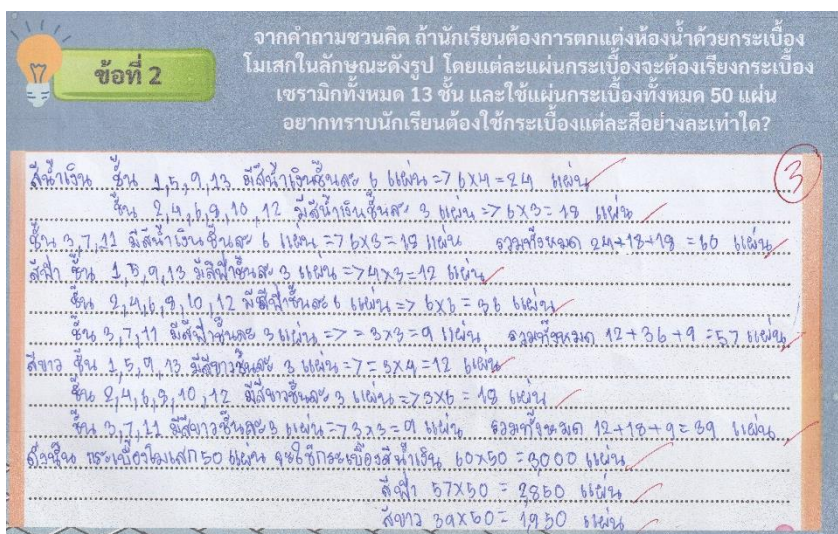 ข้อที่ 2
จากคำถามชวนคิด ถ้านักเรียนต้องการตกแต่งห้องน้ำด้วยกระเบื้อง
โมเสกในลักษณะดังรูป โดยแต่ละแผ่นกระเบื้องจะต้องเรียงกระเบื้อง
เซรามิกทั้งหมด 13 ชั้น และใช้แผ่นกระเบื้องทั้งหมด 50 แผ่น
อยากทราบนักเรียนต้องใช้กระเบื้องแต่ละสีอย่างละเท่าใด?
3
สีน้ำเงิน ชั้น 1,5,9,13 มีสีน้ำเงินชั้นละ 6 แผ่น => 6x4 = 24 แผ่น
ชั้น 2,4,6,8,10,12 มีสีน้ำเงินชั้นละ 3 แผ่น => 6x3 = 18 แผ่น
ชั้น 3,7,11 มีสีน้ำเงินชั้นละ 6 แผ่น => 6x3 = 18 แผ่น รวมทั้งหมด 24+18+18 = 60 แผ่น
สีฟ้า ชั้น 1,5,9,13 มีสีฟ้าชั้นละ 3 แผ่น => 4x3 = 12 แผ่น
ชั้น 2,4,6,8,10,12 มีสีฟ้าชั้นละ 6 แผ่น => 6x6 = 36 แผ่น
ชั้น 3,7,11 มีสีฟ้าชั้นละ 3 แผ่น => = 3x3 = 9 แผ่น รวมทั้งหมด 12+36+9 = 57 แผ่น
สีขาว ชั้น 1,5,9,13 มีสีขาวชั้นละ 3 แผ่น => = 3x4 = 12 แผ่น
ชั้น 2,4,6,8,10,12 มีสีขาวชั้นละ 3 แผ่น => 3x6 = 18 แผ่น
ชั้น 3,7,11 มีสีขาวชั้นละ 3 แผ่น => 3x3 = 9 แผ่น รวมทั้งหมด 12+18+9 = 39 แผ่น
ดังนั้น กระเบื้องโมเสก 50 แผ่น จะใช้กระเบื้องสีน้ำเงิน 60x50 = 3,000 แผ่น
สีฟ้า 57x50 = 2,850 แผ่น
สีขาว 39x50 = 1,950 แผ่น